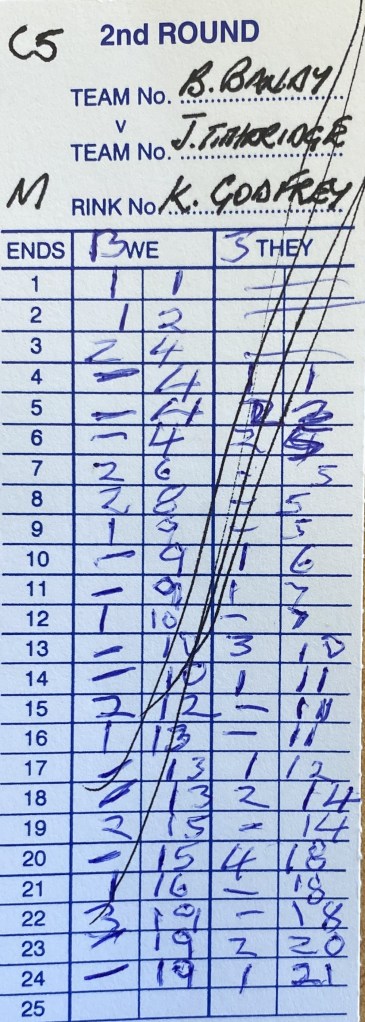 C5 2nd ROUND
TEAM No. B. BANDY
V
TEAM No. J. TITHERIDGE
M RINK No. K. GODFREY
ENDS B WE J THEY
1 1 1 - -
2 1 2 - -
3 2 4 - -
4 - 4 1 1
5 - 4
6 - 4 5
7 2 6 - 5
8 2 8 - 5
9 1 9 - 5
10 - 9 1 6
11 - 9 1 7
12 1 10 - 7
13 - 10 3 10
14 - 10 1 11
15 2 12 - 11
16 1 13 - 11
17 - 13 1 12
18 - 13 2 14
19 2 15 - 14
20 - 15 4 18
21 1 16 - 18
22 3 19 - 18
23 - 19 2 20
24 - 19 1 21
25